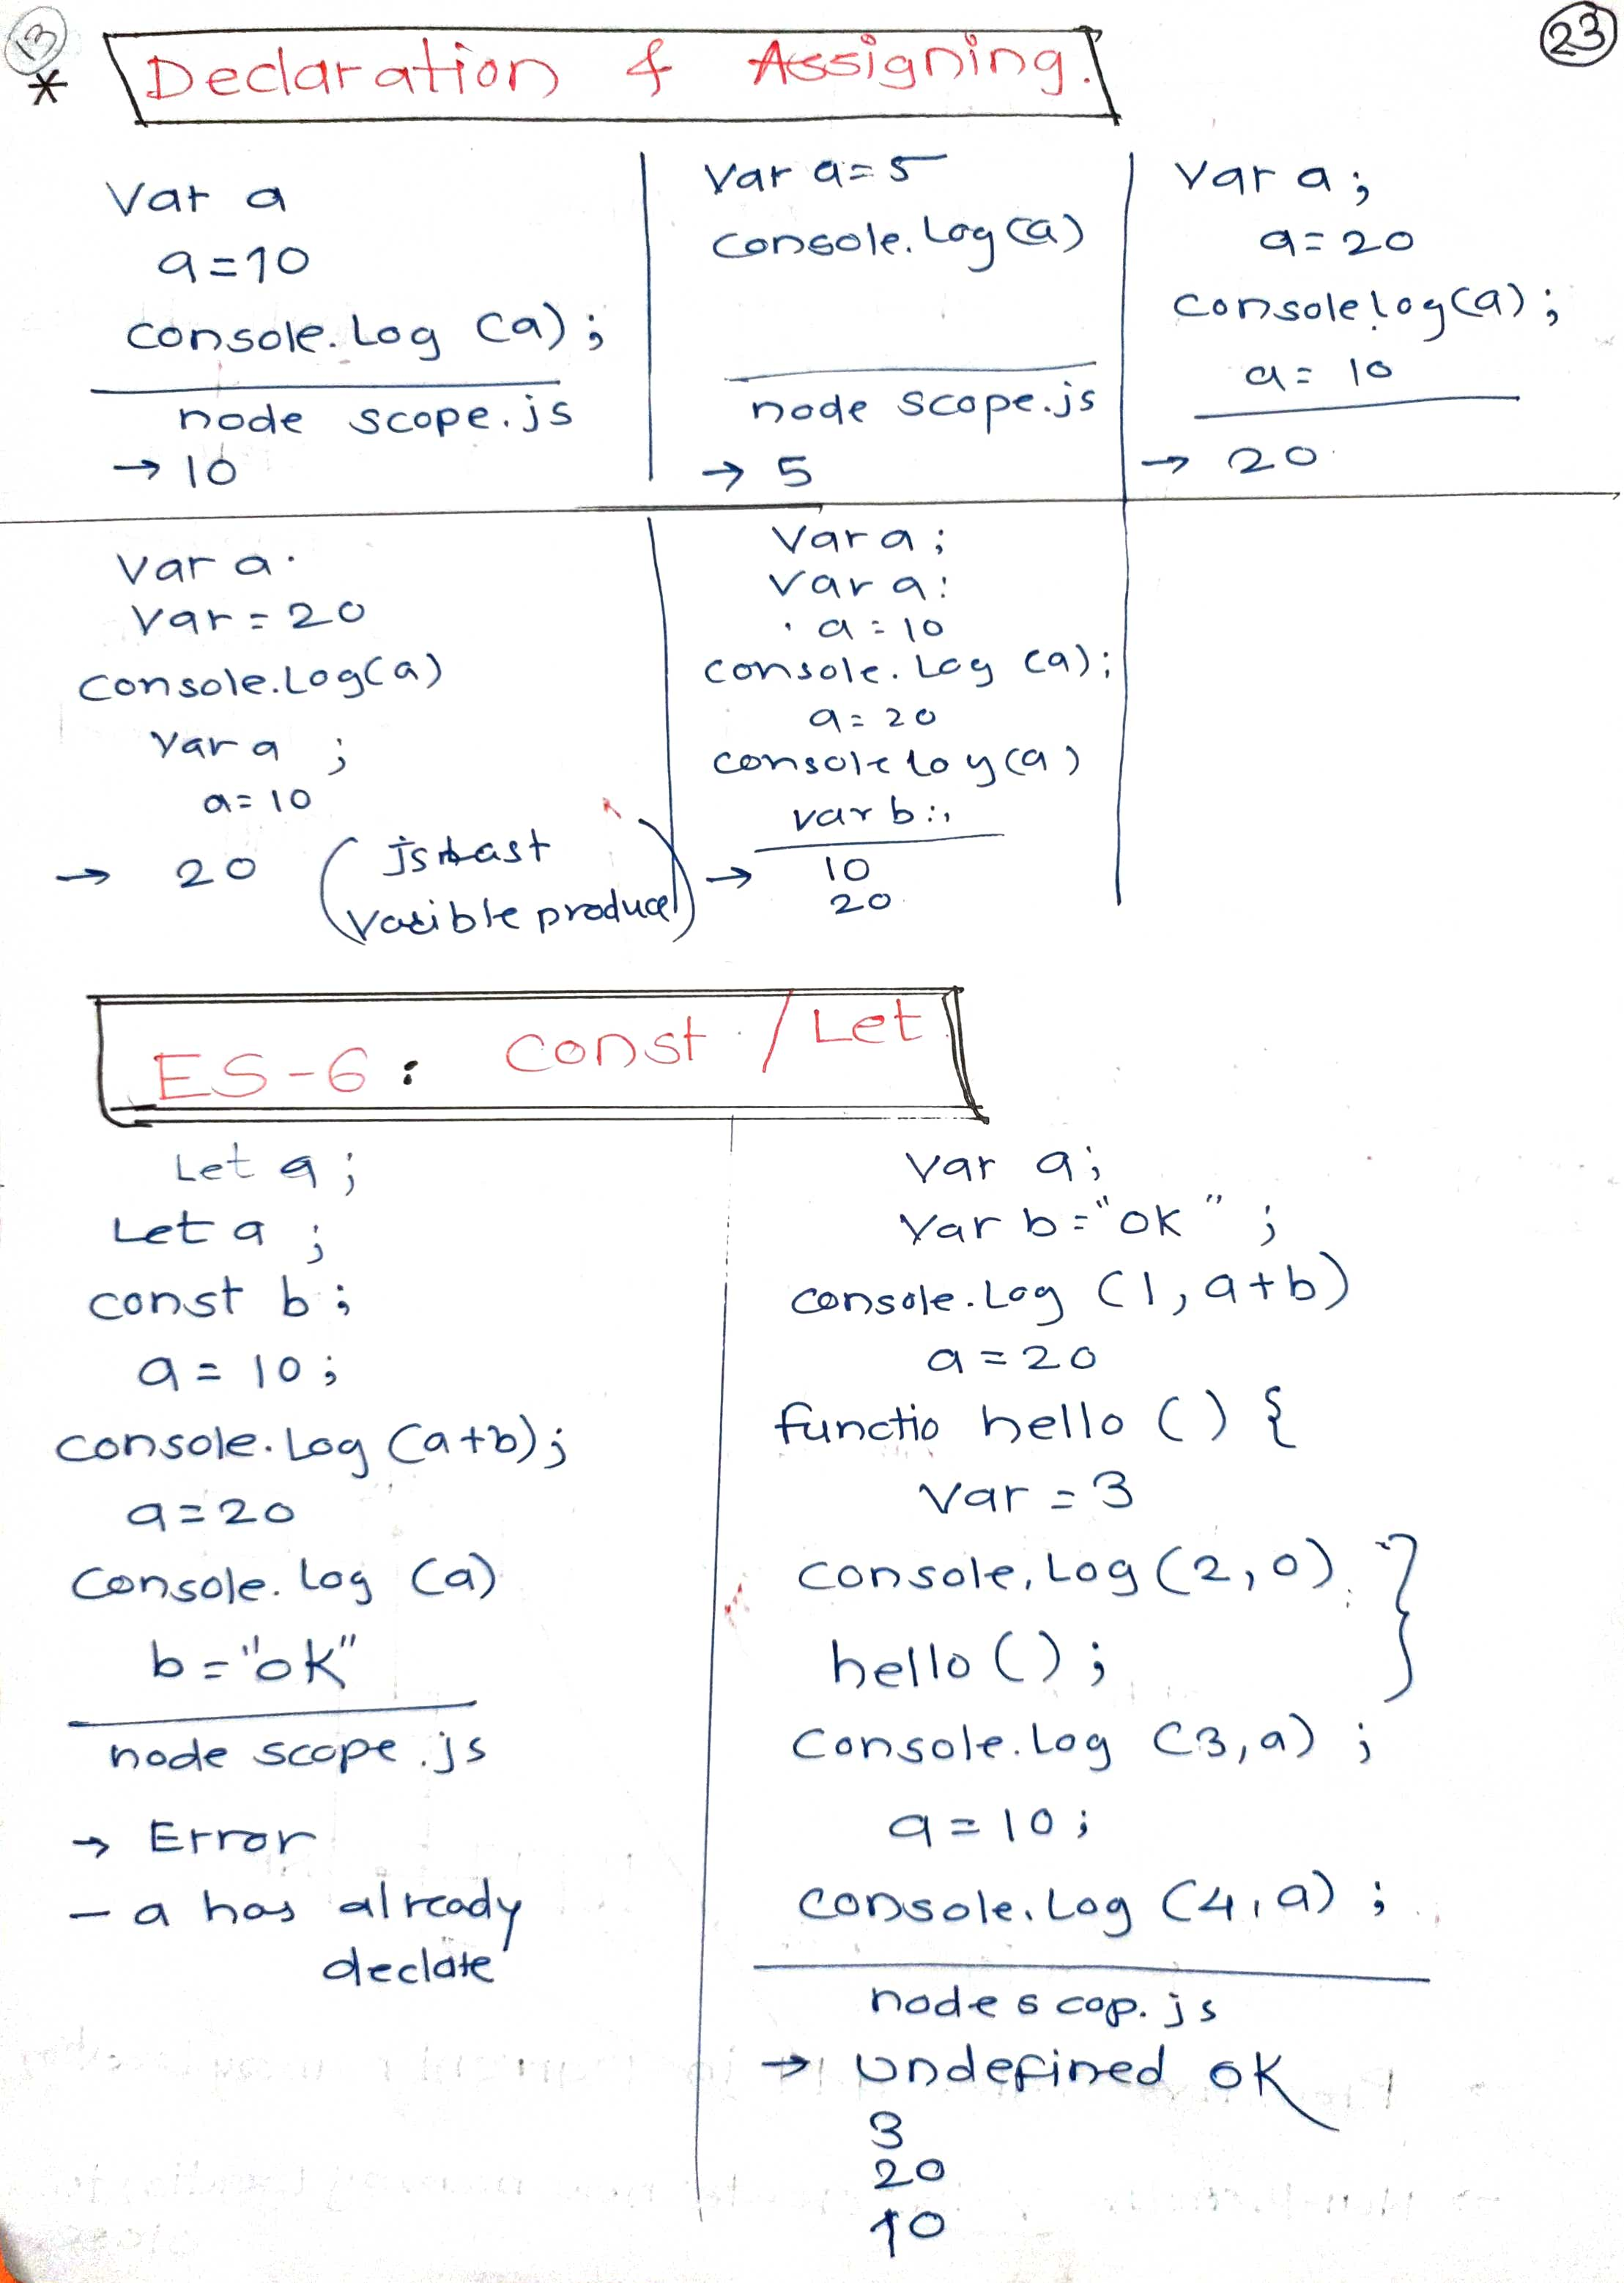 13
23
* Declaration & Assigning.
Var a
a=10
console.Log (a);
node scope.js
→ 10
Var a=5
console.Log(a)
node scope.js
→ 5
Var a;
a=20
console.log(a);
a= 10
→ 20
Var a.
Var = 20
console.Log(a)
Var a ;
a=10
→ 20
Vasible produce
Var a;
Var a:
a=10
console.Log (a);
a=20
console log(a)
var b:,
→ 10
20
ES-6: const / Let
Let a;
Let a ;
const b;
a = 10;
console.Log (a+b);
a=20
Console.log (a)
b="ok"
node scope.js
→ Error
- a has already
declate
Var a;
Var b="ok" ;
console.Log (1, a+b)
a=20
functio hello () {
Var = 3
console.Log (2, 0) }
hello () ;
Console.Log (3, a) ;
a=10;
console.Log (4, a) ;
node scop.js
→ undefined ok
3
20
10